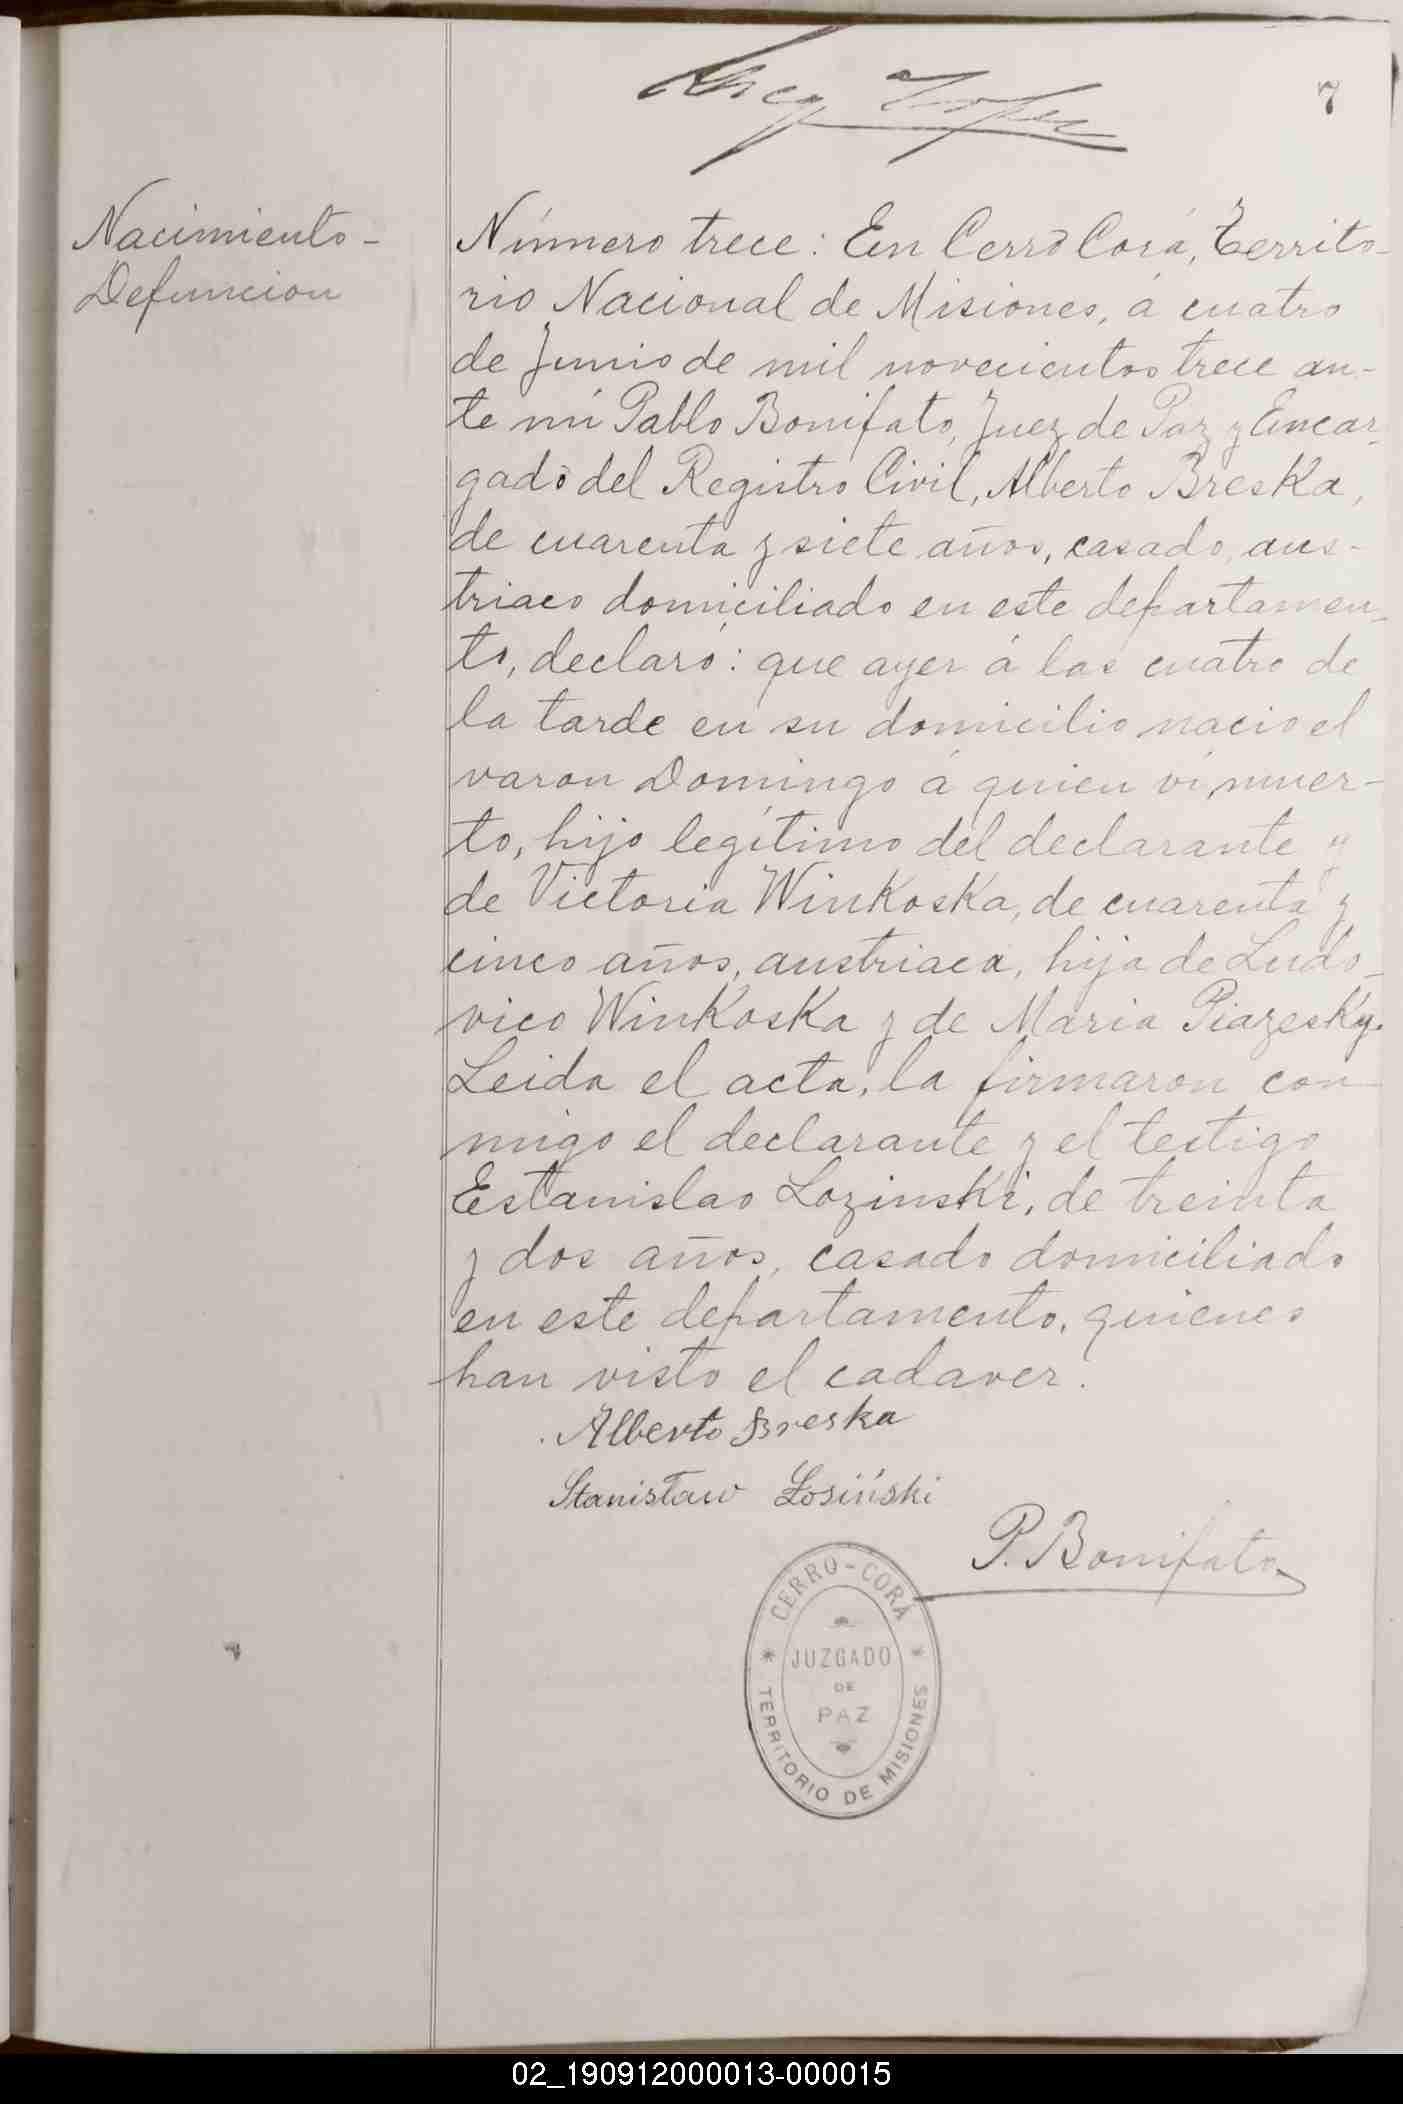 7
Nacimiento-
Defuncion
Número trece: En Cerro Corá, Territo-
rio Nacional de Misiones, á cuatro
de Junio de mil novecientos trece an-
te mí Pablo Bonifato, Juez de Paz y Encar-
gado del Registro Civil, Alberto Breska,
de cuarenta y siete años, casado, aus-
triaco domiciliado en este departamen-
to, declaró: que ayer á las cuatro de
la tarde en su domicilio nacio el
varon Domingo á quien ví muer-
to, hijo legítimo del declarante y
de Victoria Winkoska, de cuarenta y
cinco años, austriaca, hija de Ludo-
vico Winkoska y de Maria Piazesky.
Leida el acta, la firmaron con
migo el declarante y el testigo
Estanislao Lozinski, de treinta
y dos años, casado domiciliado
en este departamento, quienes
han visto el cadaver.
Alberto Breska
Stanisław Łosiński
P. Bonifato
CERRO-CORÁ
JUZGADO
DE
PAZ
TERRITORIO DE MISIONES
02_190912000013-000015